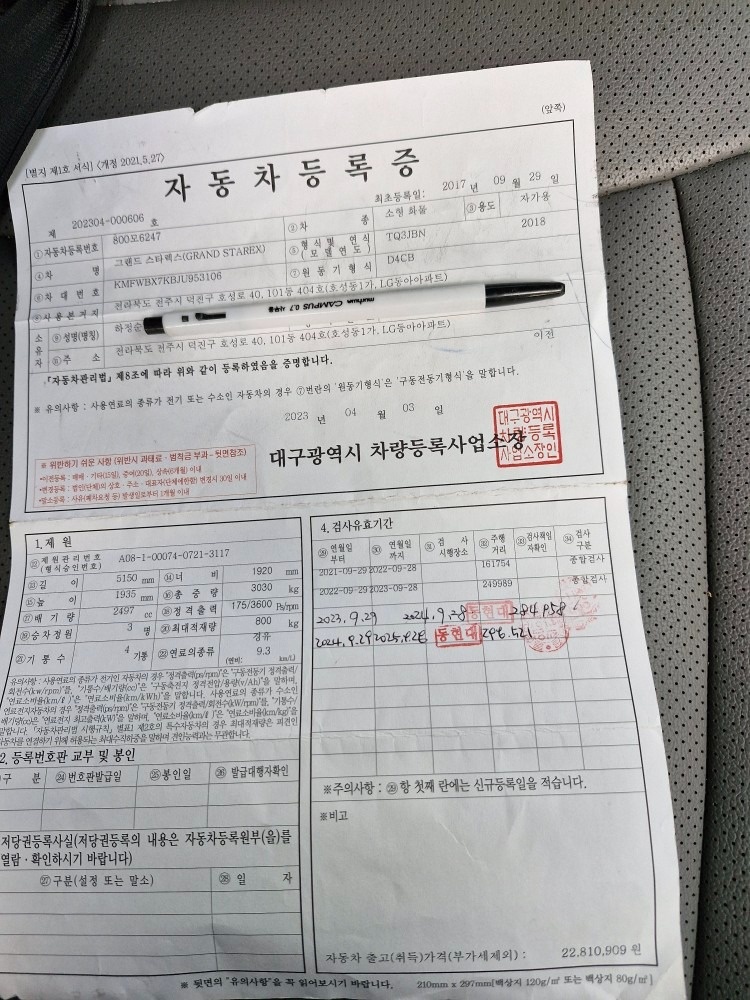 (앞쪽)
[별지 제1호 서식] <개정 2021.5.27>
자 동 차 등 록 증
제 202304-000606 호
최초등록일: 2017 년 09 월 29 일
①자동차등록번호 800모6247 ②차 종 소형 화물 ③용도 자가용
④차 명 그랜드 스타렉스(GRAND STAREX) ⑤형식 및 연식 (모델연도) TQ3JBN 2018
⑥차 대 번 호 KMFWBX7KBJU953106 ⑦원 동 기 형 식 D4CB
⑧사 용 본 거 지 전라북도 전주시 덕진구 호성로 40, 101동 404호(호성동1가, LG동아아파트)
munhwa CAMPUS 0.7
소 유 자 ⑨성명(명칭) 하정순
⑪주 소 전라북도 전주시 덕진구 호성로 40, 101동 404호(호성동1가, LG동아아파트)
이전
「자동차관리법」 제8조에 따라 위와 같이 등록하였음을 증명합니다.
※ 유의사항 : 사용연료의 종류가 전기 또는 수소인 자동차의 경우 ⑦번란의 '원동기형식'은 '구동전동기형식'을 말합니다.
2023 년 04 월 03 일
대구광역시 차량등록사업소장
대구광역시
차량등록
사업소장인
※ 위반하기 쉬운 사항 (위반시 과태료ㆍ범칙금 부과 - 뒷면참조)
•이전등록 : 매매ㆍ기타(15일), 증여(20일), 상속(6개월) 이내
•변경등록 : 법인(단체)의 상호ㆍ주소ㆍ대표자(단체에한함) 변경시 30일 이내
•말소등록 : 사유(폐차요청 등) 발생일로부터 1개월 이내
1. 제 원
⑫제 원 관 리 번 호 (형식승인번호) A08-1-00074-0721-3117
⑬길 이 5150 mm ⑭너 비 1920 mm
⑮높 이 1935 mm ⑯총 중 량 3030 kg
⑰배 기 량 2497 cc ⑱정 격 출 력 175/3600 Ps/rpm
⑲승 차 정 원 3 명 ⑳최대적재량 800 kg
㉑기 통 수 4 기통 ㉒연료의종류 경유 (연비: 9.3 km/L)
2. 등록번호판 교부 및 봉인
구 분 ㉔번호판발급일 ㉕봉인일 ㉖발급대행자확인
저당권등록사실(저당권등록의 내용은 자동차등록원부(을)를
열람ㆍ확인하시기 바랍니다)
㉗구분(설정 또는 말소) ㉘일 자
4. 검사유효기간
㉙연월일 부터 ㉚연월일 까지 ㉛검 사 시행장소 ㉜주행 거리 ㉝검사책임 자확인 ㉞검사 구분
2021-09-29 2022-09-28 161754 종합검사
2022-09-29 2023-09-28 249989 종합검사
2023.9.29 2024.9.28 동현대 284,958
2024.9.29 동현대 296.521
※주의사항 : ㉙항 첫째 란에는 신규등록일을 적습니다.
※비고
자동차 출고(취득)가격(부가세제외) : 22,810,909 원
※ 뒷면의 "유의사항"을 꼭 읽어보시기 바랍니다.
210mm x 297mm[백상지 120g/㎡ 또는 백상지 80g/㎡]